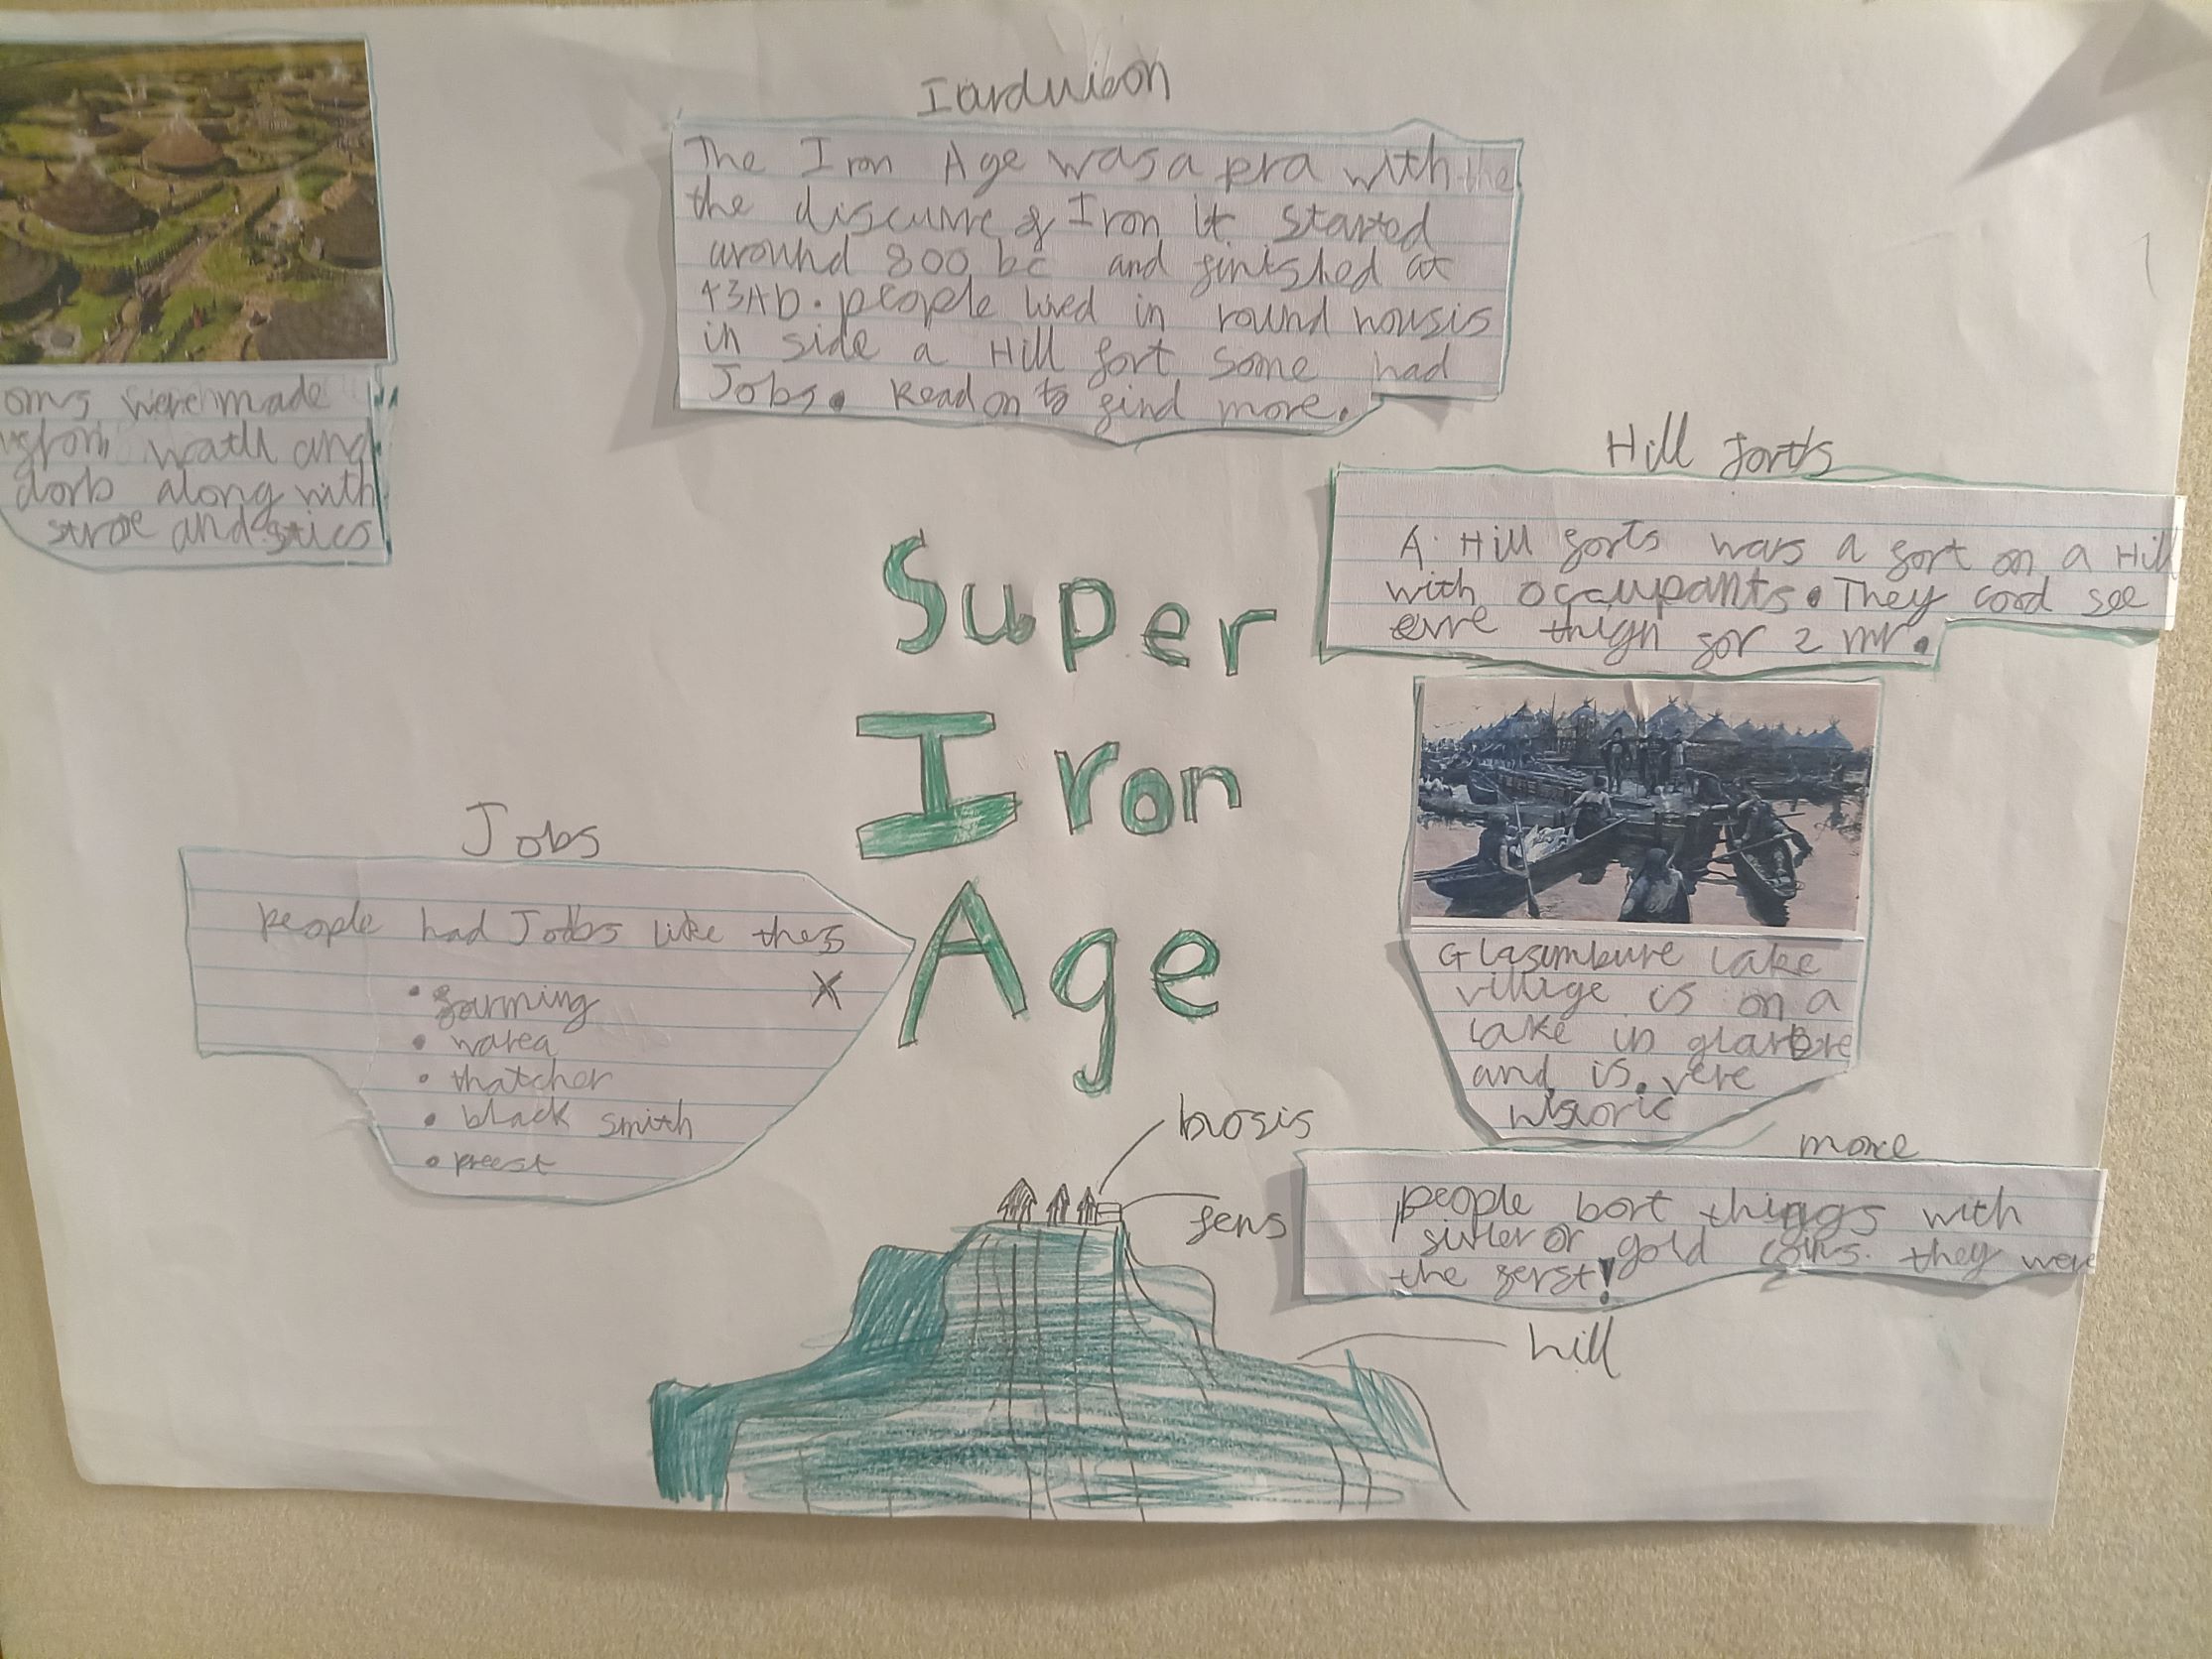 Iarduicon
The Iron Age was a era with the
the discurre of Iron It started
around 800 bc and finished at
43AD. people lived in round housis
in side a Hill fort some had
Jobs. Read on to find more.
oms were made
from watll and
dorb along with
stroe and stics
Hill forts
A Hill forts wars a fort on a Hill
with occupants. They cord see
evre thign for 2 mr.
Super
Iron
Age
Jobs
people had Jobs like thes
X
• farming
• warea
• thatcher
• black smith
• preest
Glasumbure lake
village is on a
lake in glarbre
and is vere
hisoric
more
people bort things with
sivler or gold coins. they were
the ferst!
hosis
fens
hill